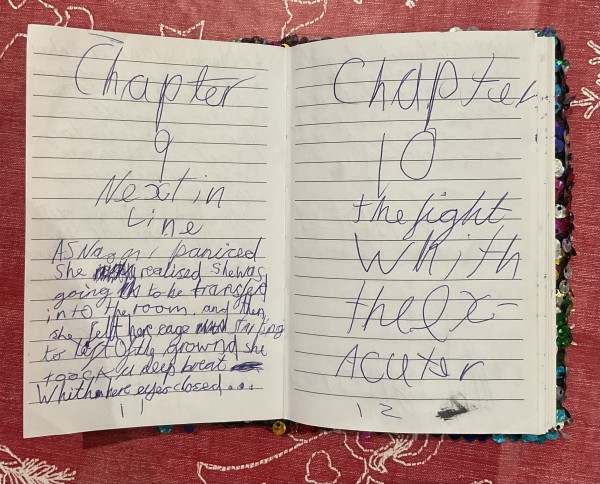 Chapter
9
Next in
Line
AS Naomi paniced
She realised she was
going to be transfed
into the room. and then
she felt here cage starting
to of the Ground she
toock a deep breat
Whith here eyes closed...
11
Chapter
10
the fight
Whith
the ex-
acuter
12